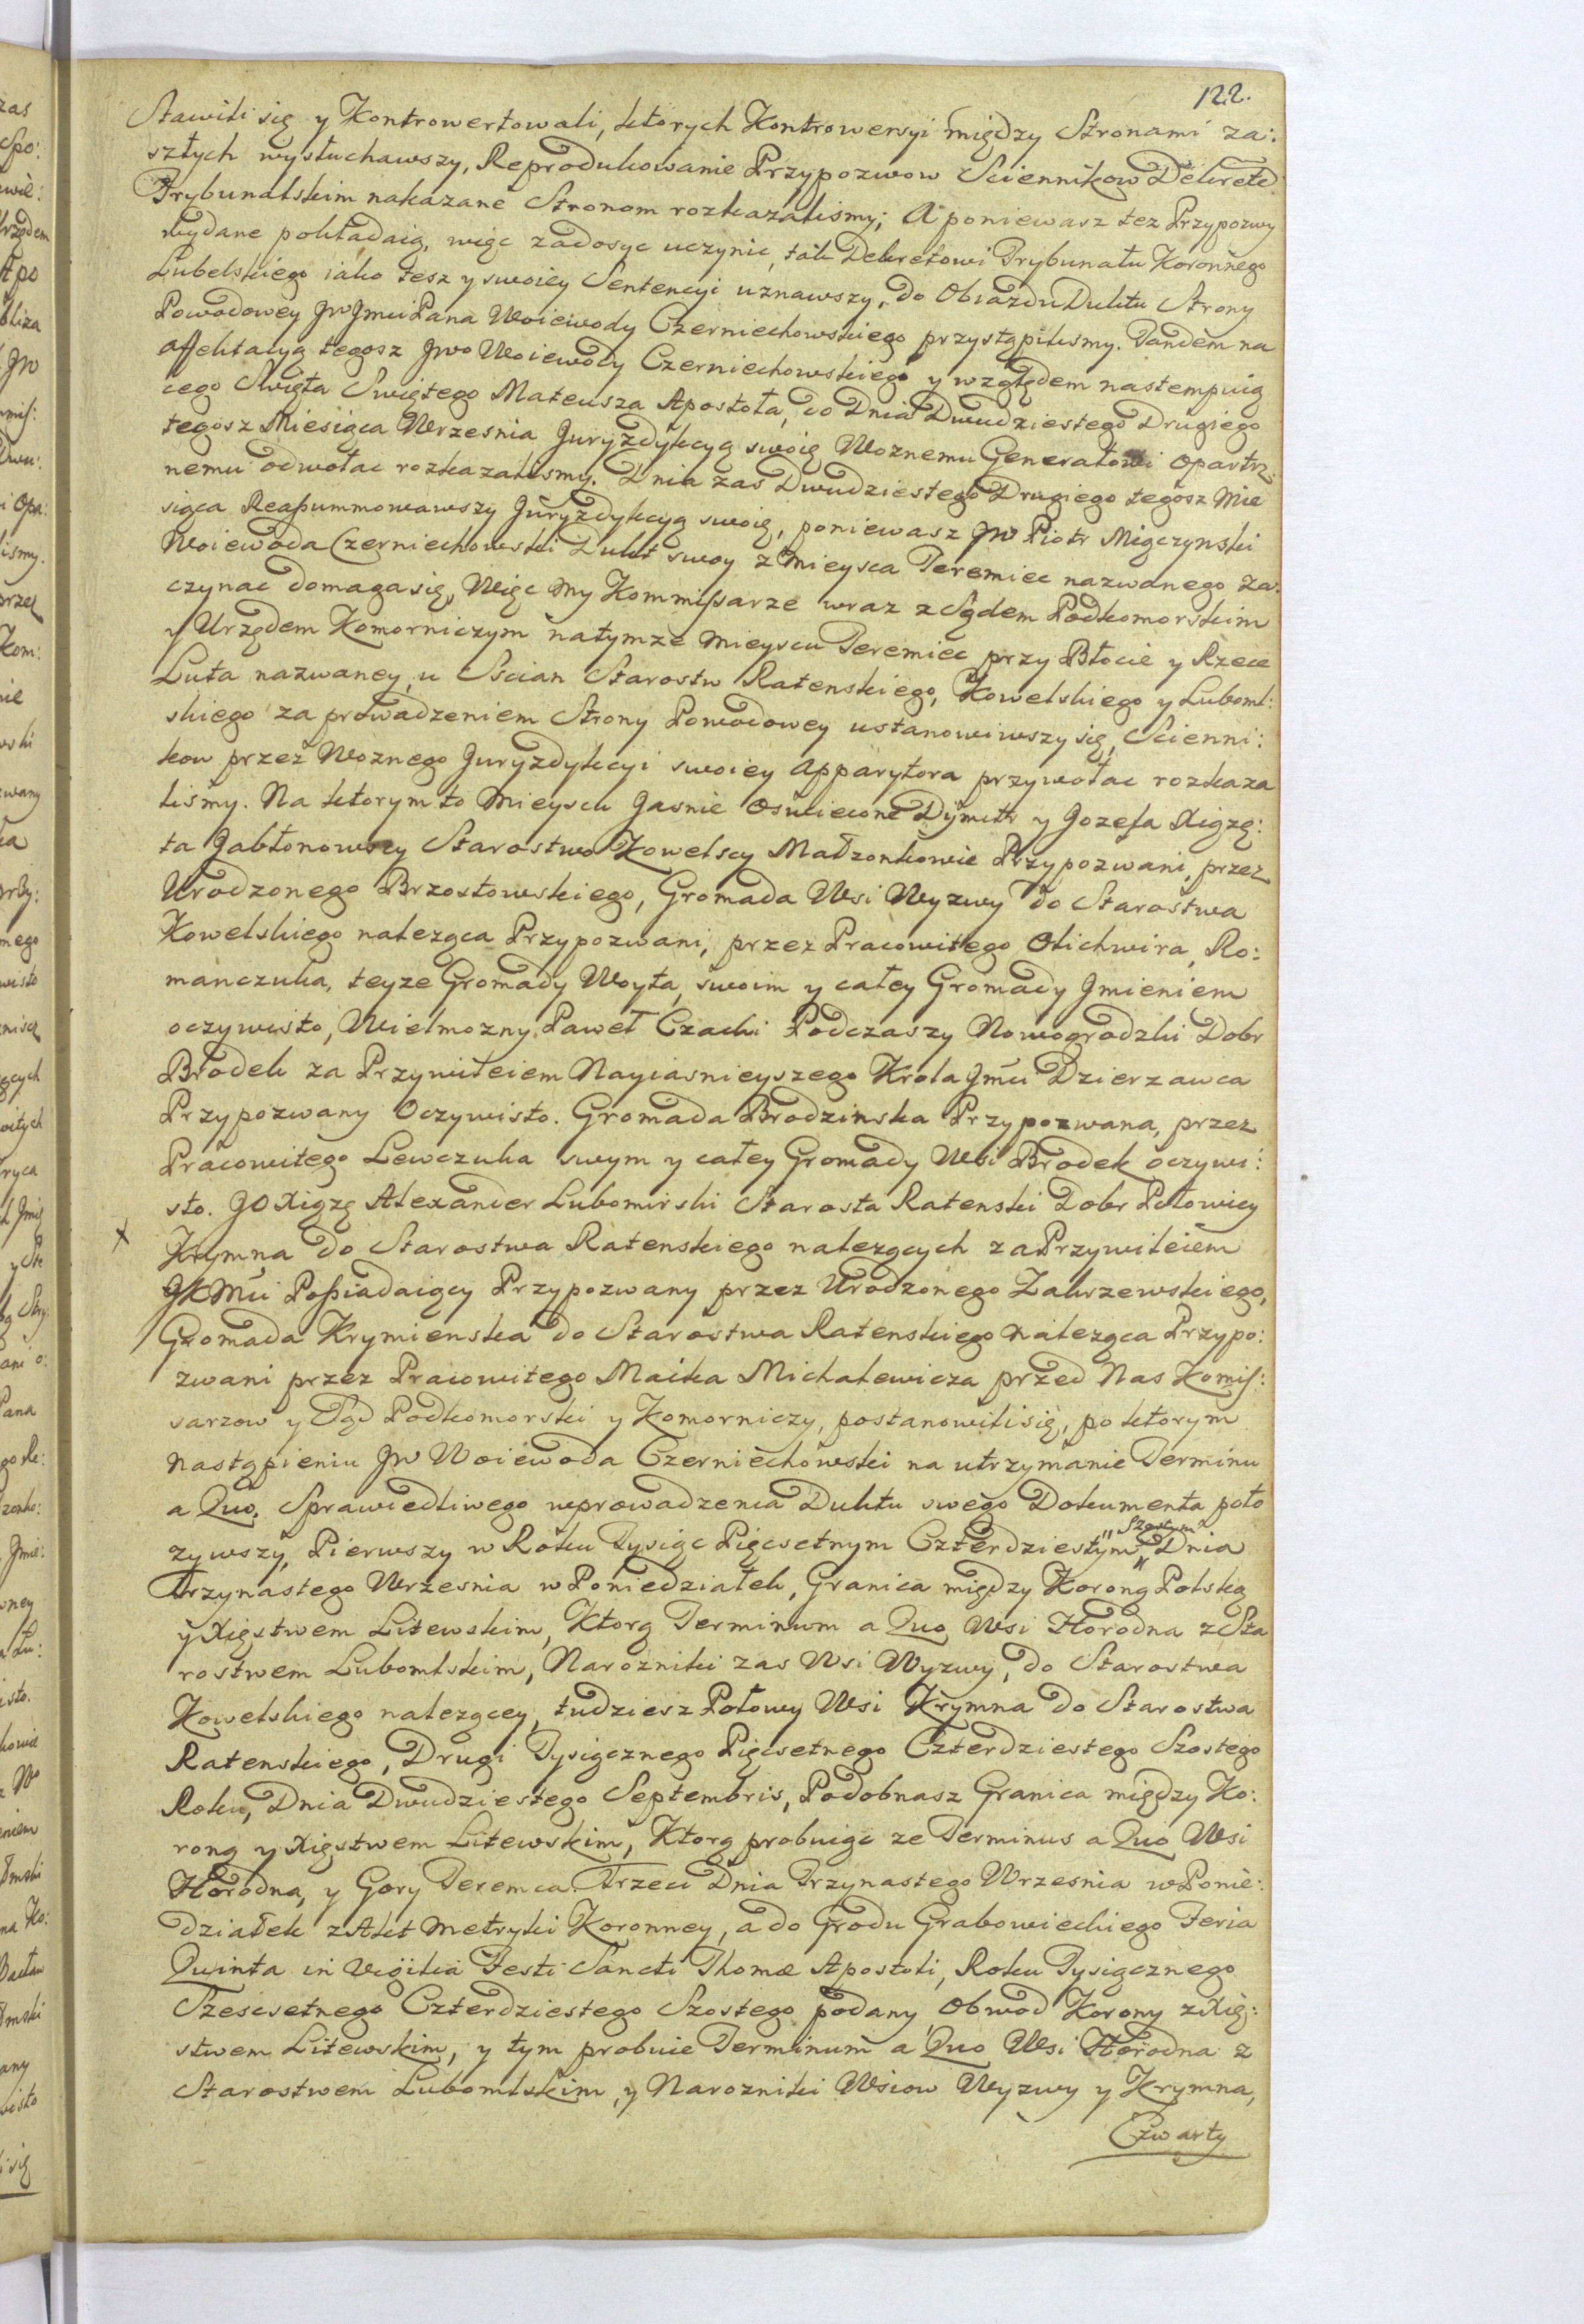 122.
Stawili się y Kontrowertowali, ktorych Kontrowersyi między Stronami za:
szłych wysłuchawszy, Reprodukowanie Przypozwow Sciennikow Dekrete
Trybunalskim nakazane Stronom rozkazalismy; A poniewasz tez Przypozwy
wydane pokładaią, więc zadosyc uczynic, tak Dekretowi Trybunału Koronnego
Lubelskiego iako tesz y swoiey Sentencyi uznawszy, do Obiazdu Duktu Strony
Powodowey JwJmci Pana Woiewody Czerniechowskiego przystąpilismy. Tandem na
affektacyą tegosz Jwo Woiewody Czerniechowskiego y względem nastempuią
cego Swięta Swiętego Mateusza Apostoła, do Dnia Dwudziestego Drugiego
tegosz Miesiąca Wrzesnia Juryzdykcyą swoię Woznemu Generałowi Opartrz:
nemu odwołac rozkazalismy. Dnia zas Dwudziestego Drugiego tegosz Mie
siąca Reassummowawszy Juryzdykcyą swoię, poniewasz JW Piotr Miączynski
Woiewoda Czerniechowski Dukt swoy z Mieysca Teremiec nazwanego Za:
czynac domaga się, Więc My Kommissarze wraz z Sądem Podkomorskim
y Urzędem Komorniczym natymze Mieyscu Teremiec przy Błocie y Rzece
Luta nazwaney, u Scian Starostw Ratenskiego, Kowelskiego y Luboml:
skiego za prowadzeniem Strony Powodowey ustanowiwszy się, Scienni:
kow przez Woznego Juryzdykcyi swoiey Apparytora przywołac rozkaza
lismy. Na ktorym to Mieyscu Jasnie Oswiecone Dymitr y Jozefa Xiązę:
ta Jabłonowscy Starostwo Kowelscy Małzonkowie Przypozwani, przez
Urodzonego Brzostowskiego, Gromada Wsi Wyzwy do Starostwa
Kowelskiego naleząca Przypozwani, przez Pracowitego Olichwira, Ro:
manczuka, teyze Gromady Woyta, swoim y całey Gromady Jmieniem
oczywisto, Wielmozny Paweł Czacki Podczaszy Nowogrodzki Dobr
Brodek za Przywileiem Nayiasnieyszego Krola Jmći Dzierzawca
Przypozwany Oczywisto. Gromada Brodzinska Przypozwana, przez
Pracowitego Lewczuka swym y całey Gromady Wsi Brodek oczywi:
sto. JO Xiązę Alexander Lubomirski Starosta Ratenski Dobr Połowicy
Krymna do Starostwa Ratenskiego nalezących za Przywileiem
JKMći Possiadaiący Przypozwany przez Urodzonego Zakrzewskiego,
Gromada Krymienska do Starostwa Ratenskiego naleząca Przypo:
zwani przez Pracowitego Maika Michalewicza przed Nas Komis:
sarzow y Sąd Podkomorski y Komorniczy, postanowili się, po ktorym
nastąpieniu JW Woiewoda Czerniechowski na utrzymanie Terminu
a Quo, Sprawiedliwego wprowadzenia Duktu swego Dokumenta poło
zywszy, Pierwszy w Roku Tysiąc Pięcsetnym Czterdziestym „Szostym„ Dnia
Trzynastego Wrzesnia w Poniedziałek, Granica między Koroną Polską
y Xięstwem Litewskim, Ktorą Terminum a Quo Wsi Horodna z Sta
rostwem Lubomlskim, Narozniki zas Wsi Wyzwy, do Starostwa
Kowelskiego nalezącey, tudziesz Połowy Wsi Krymna do Starostwa
Ratenskiego, Drugi Tysiącznego Pięcsetnego Czterdziestego Szostego
Roku, Dnia Dwudziestego Septembris, Podobnasz Granica między Ko:
roną y Xięstwem Litewskim, Ktorą probuiąc ze Terminus a Quo Wsi
Horodna, y Gory Teremca. Trzeci Dnia Trzynastego Wrzesnia w Ponie:
działek z Akt Metryki Koronney, a do Grodu Grabowieckiego Feria
Quinta in Vigilia Festi Sancti Thomæ Apostoli, Roku Tysiącznego
Szescsetnego Czterdziestego Szostego podany Obwod Korony z Xię:
stwem Litewskim, y tym probuie Terminum a Quo Wsi Horodna z
Starostwem Lubomlskim, y Narozniki Wsiow Wyzwy y Krymna,
Czwarty